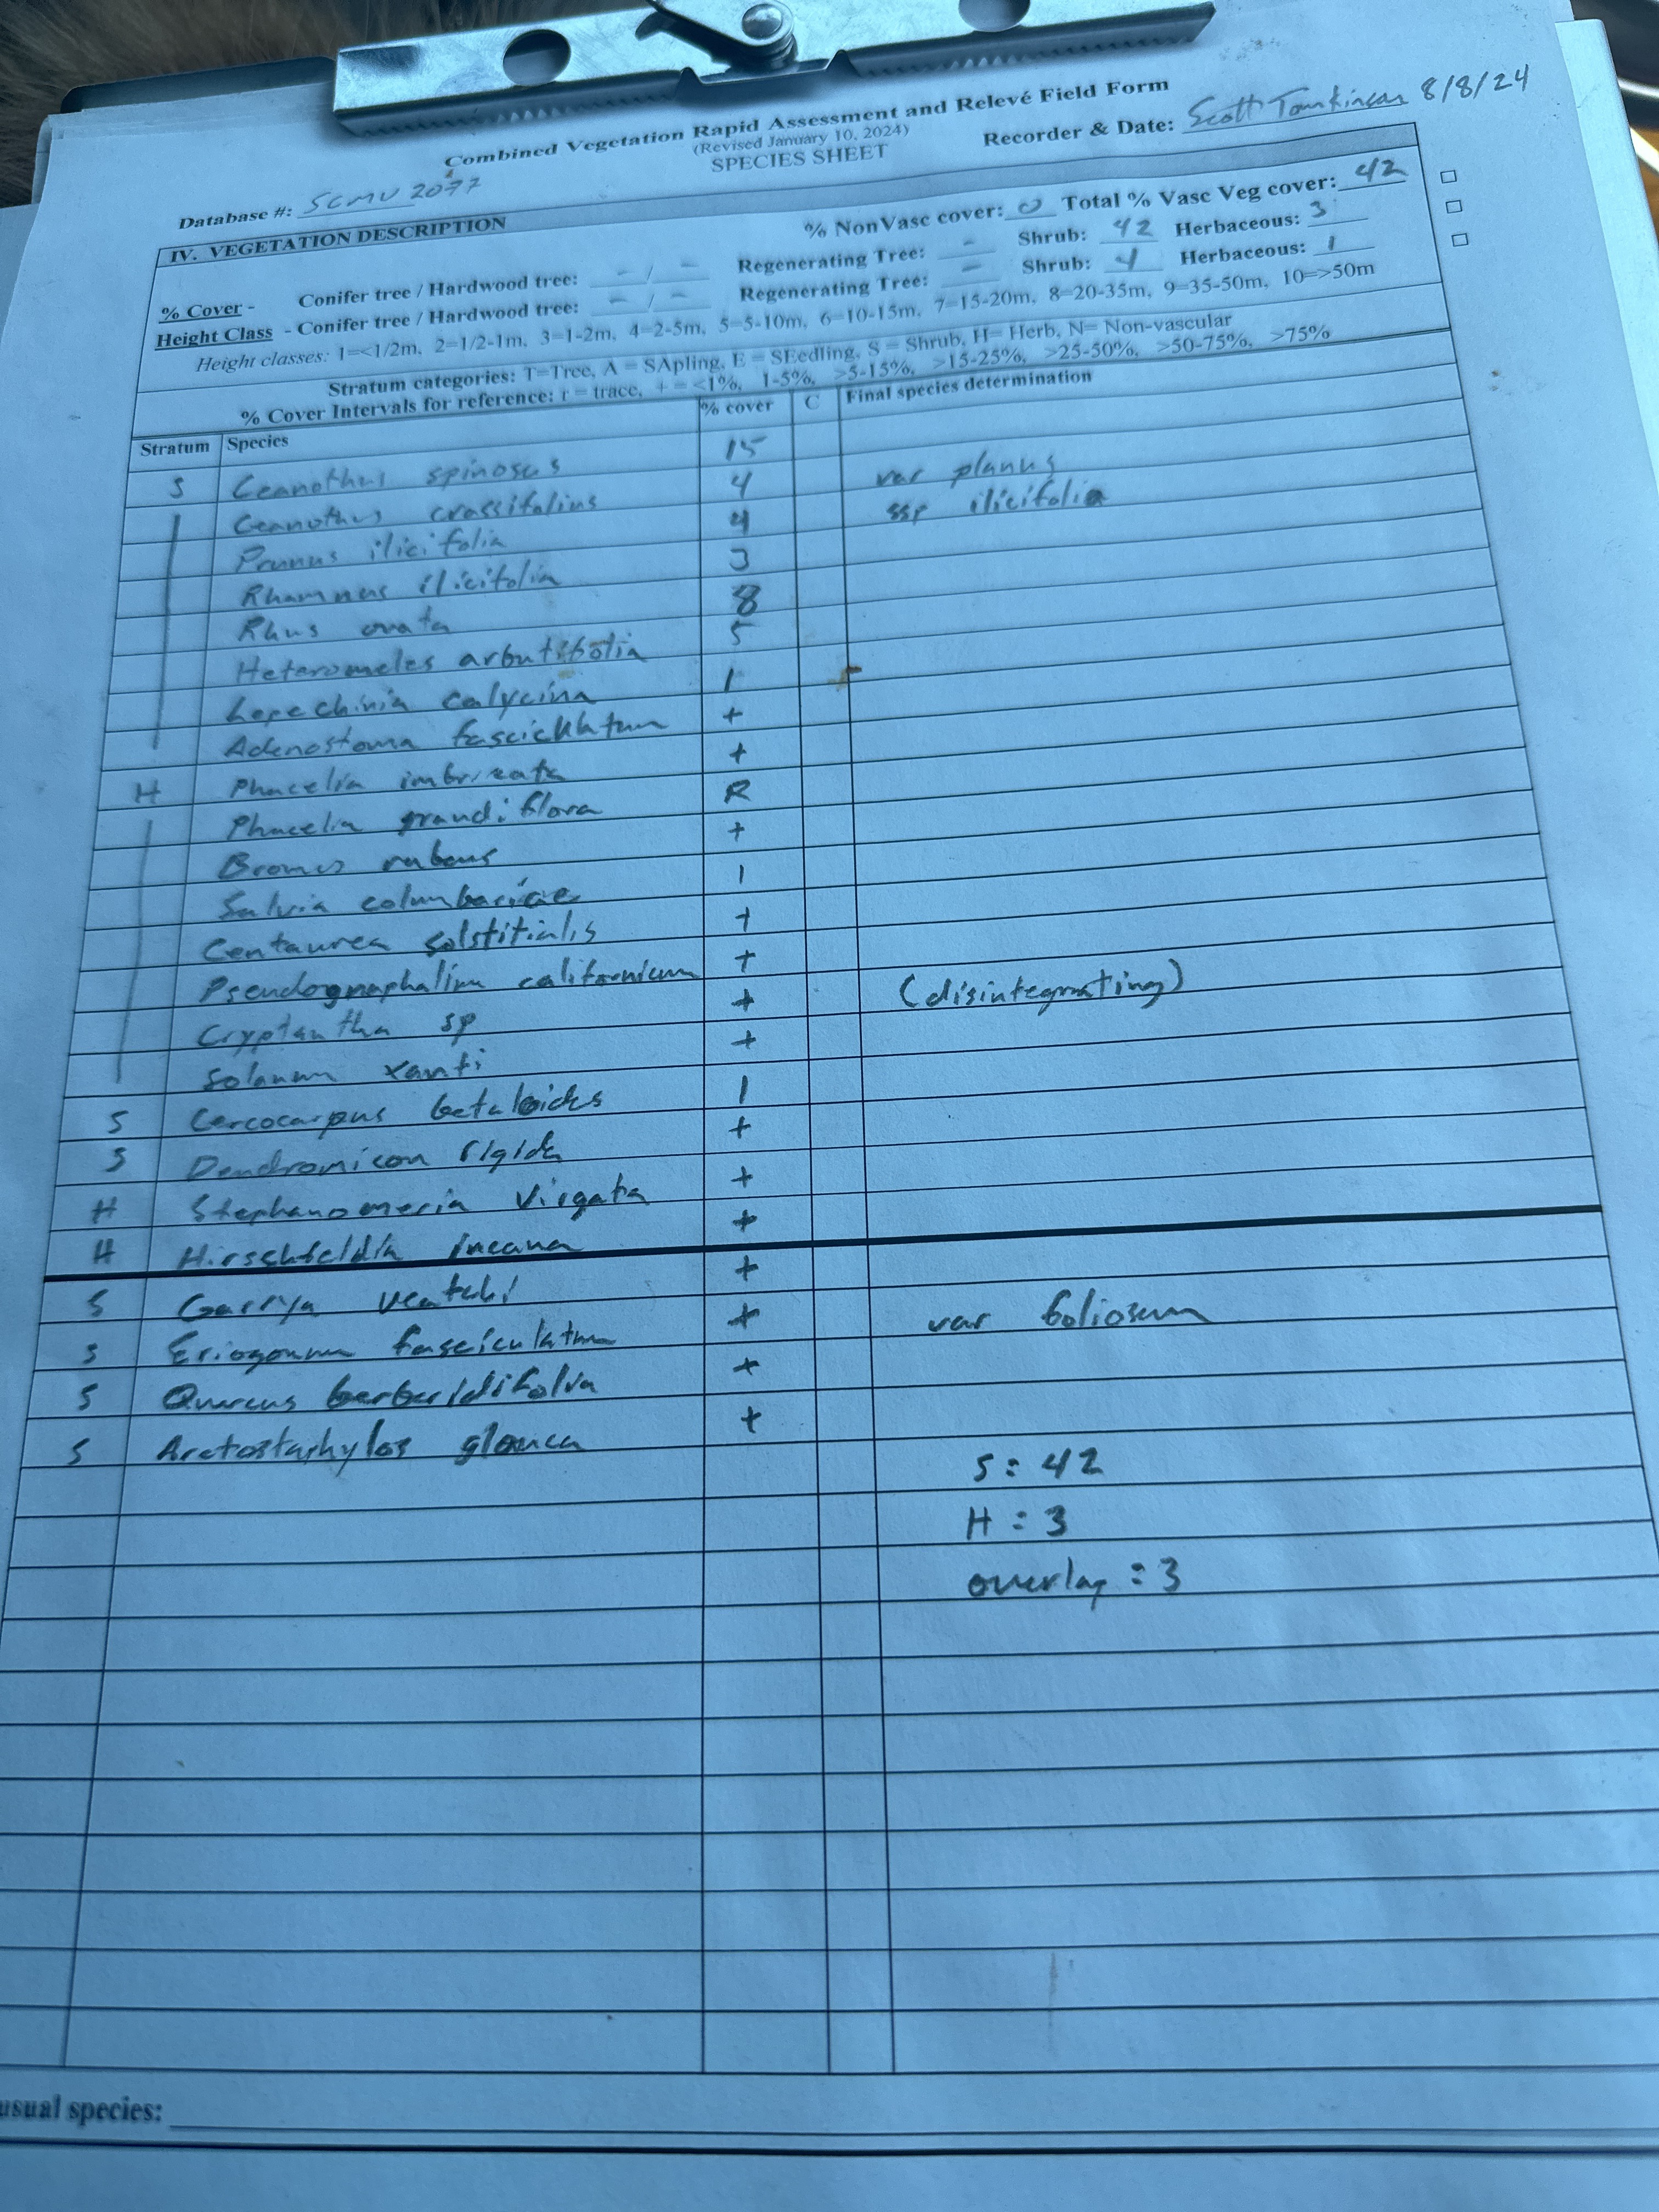 Combined Vegetation Rapid Assessment and Relevé Field Form
(Revised January 10, 2024)
SPECIES SHEET
Recorder & Date: Scott 8/8/24
Database #: SCMU 2077
IV. VEGETATION DESCRIPTION
% NonVasc cover: 0 Total % Vasc Veg cover: 42
% Cover - Conifer tree / Hardwood tree: - / - Regenerating Tree: - Shrub: 42 Herbaceous: 3
Height Class - Conifer tree / Hardwood tree: - / - Regenerating Tree: - Shrub: 4 Herbaceous: 1
Height classes: 1=<1/2m, 2=1/2-1m, 3=1-2m, 4=2-5m, 5=5-10m, 6=10-15m, 7=15-20m, 8=20-35m, 9=35-50m, 10=>50m
Stratum categories: T=Tree, A = SApling, E = SEedling, S = Shrub, H= Herb, N= Non-vascular
% Cover Intervals for reference: r = trace, + = <1%, 1-5%, >5-15%, >15-25%, >25-50%, >50-75%, >75%
Stratum Species % cover C Final species determination
S Ceanothus spinosus 15
Ceanothus crassifolius 4 var planus
Prunus ilicifolia 4 ssp ilicifolia
Rhamnus ilicifolia 3
Rhus ovata 8
Heteromeles arbutifolia 5
Lepechinia calycina 1
Adenostoma fasciculatum +
H Phacelia imbricata +
Phacelia grandiflora R
Bromus rubens +
Salvia columbariae 1
Centaurea solstitialis +
Pseudognaphalium californicum +
Cryptantha sp + (disintegrating)
Solanum xanti +
S Cercocarpus betuloides 1
S Dendromicon rigida +
H Stephanomeria virgata +
H Hirschfeldia incana +
S Garrya veatchi +
S Eriogonum fasciculatum + var foliosum
S Quercus berberidifolia +
S Arctostaphylos glauca +
S: 42
H : 3
overlap : 3
usual species: